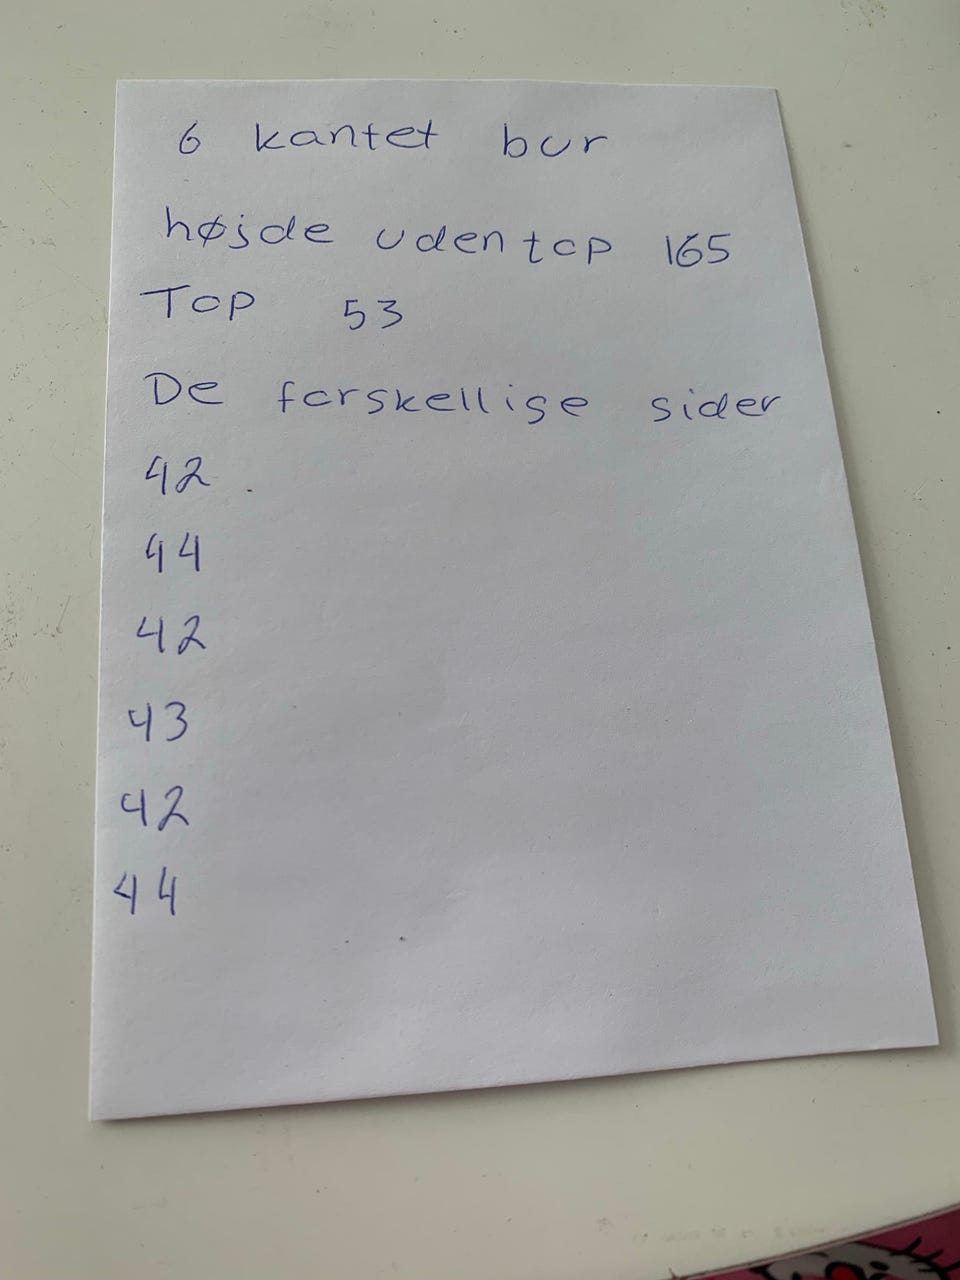 6 kantet bur
højde uden top 165
Top 53
De forskellige sider
42
44
42
43
42
44